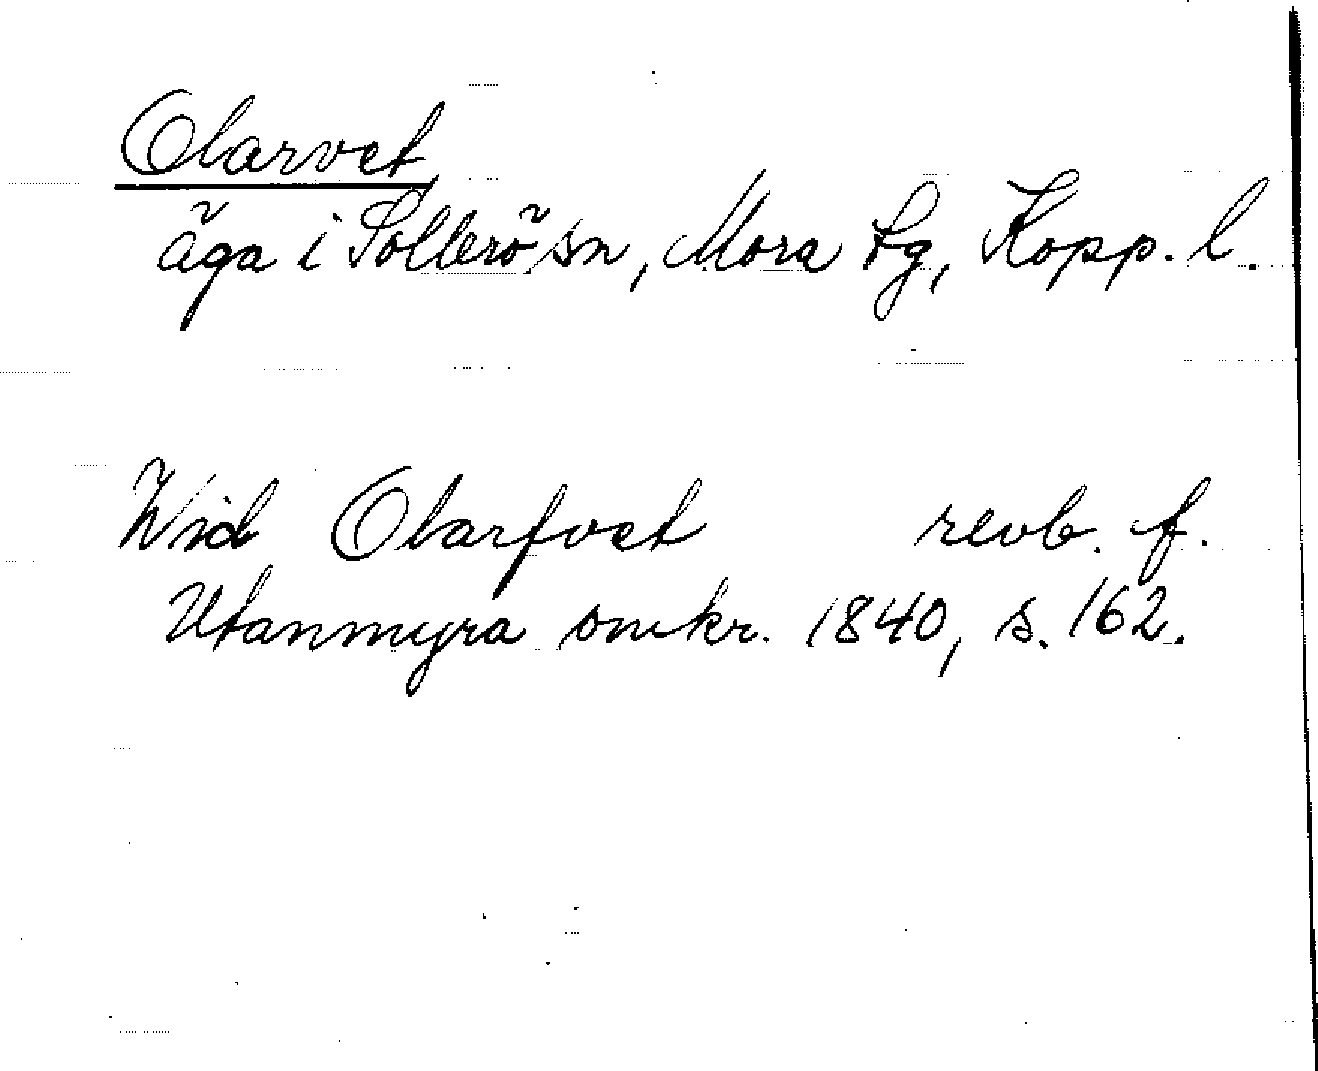 Olarvet
äga i Sollerö sn, Mora tg, Kopp. l.
Wid Olarfvet revb. f.
Utanmyra omkr. 1840, s. 162.